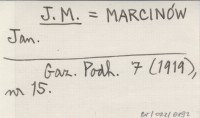 J. M. = MARCINÓW
Jan.
Gaz. Podh. 7 (1919),
nr 15.